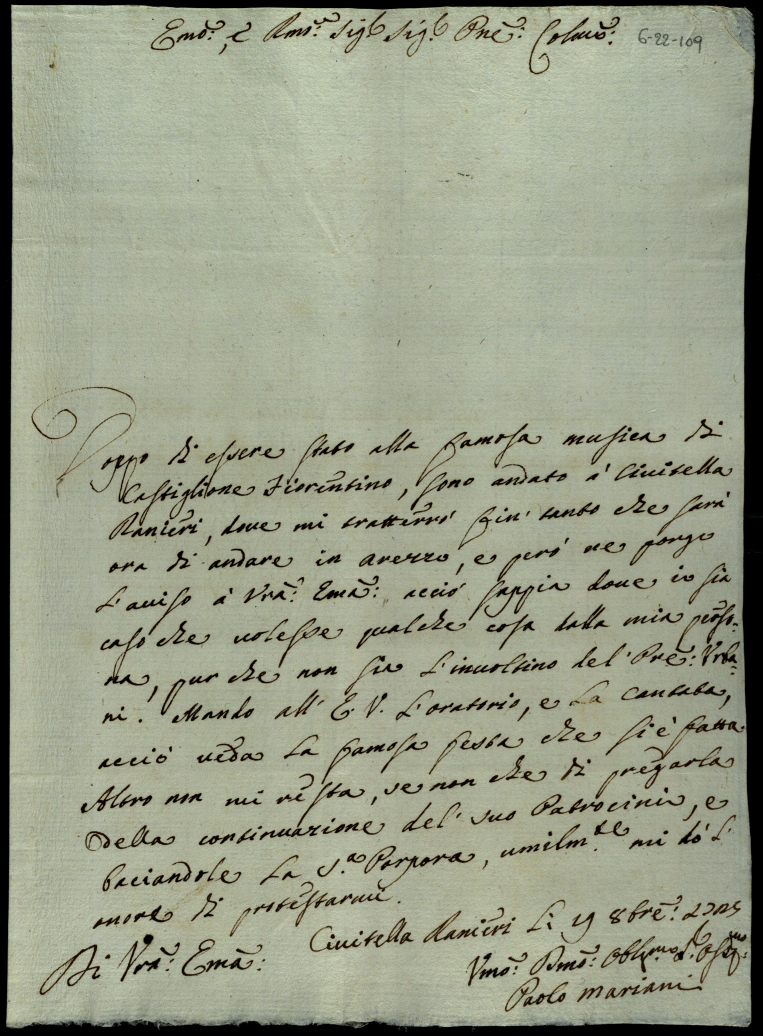 Emo: e Rmo: Sigr Sigr Pne: Colmo:
6-22-109
Doppo di essere stato alla famosa musica di
Castiglione Fiorentino, sono andato à Civitella
Ranieri, dove mi tratterrò fin' tanto che sarà
ora di andare in arezzo, e però ne porgo
L'aviso à Vra: Ema: acciò sappia dove io sia
caso che volesse qualche cosa dalla mia perso-
na, pur che non sia L'involtino del' Pre: Urba-
ni. Mando all' E. V. L'oratorio, e La Cantata,
acciò veda La famosa festa che si è fatta
Altro non mi resta, se non che di pregarla
della continuazione del' suo Patrocinio, e
baciandole La S.a Porpora, umilm.te mi dò L'
onore di protestarmi.
Civitella Ranieri Li 19 8bre:
Di Vra: Ema:
Vmo: Dmo: Obl:mo
Paolo Mariani